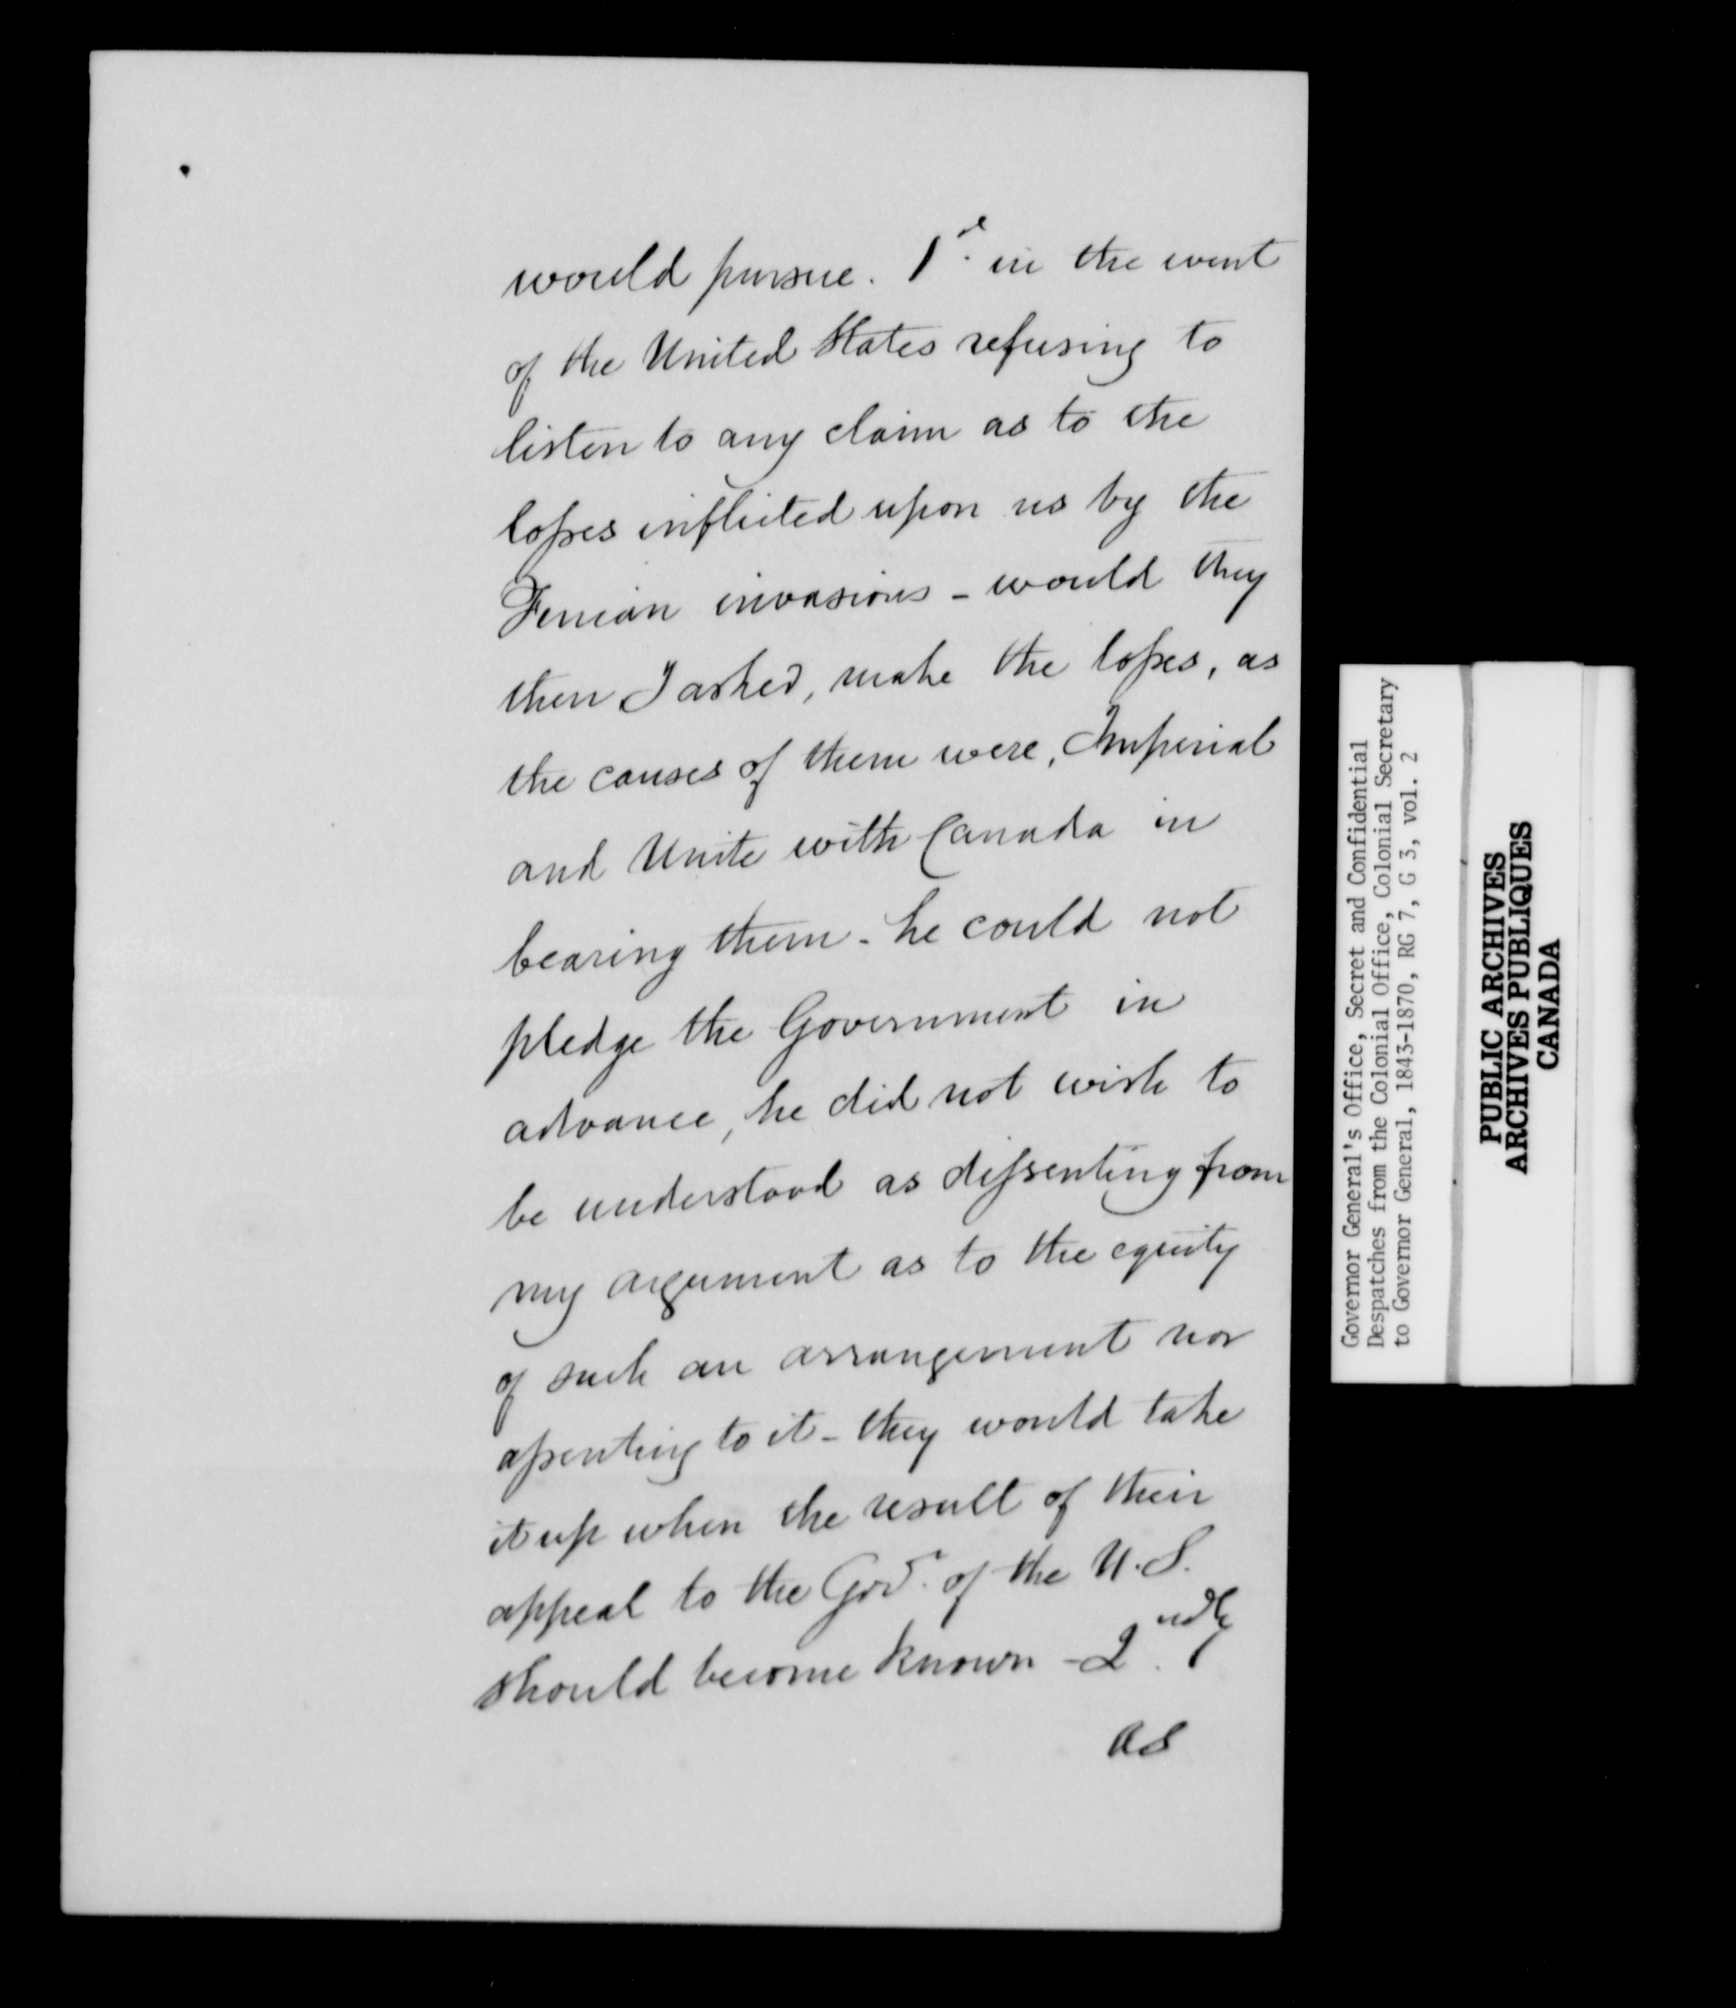 would pursue. 1st. in the event
of the United States refusing to
listen to any claim as to the
losses inflicted upon us by the
Fenian invasions - would they
then I asked, make the losses, as
the causes of them were, Imperial
and Unite with Canada in
bearing them - he could not
pledge the Government in
advance, he did not wish to
be understood as dissenting from
my argument as to the equity
of such an arrangement nor
assenting to it - they would take
it up when the result of their
appeal to the Govt. of the U.S.
should become known - 2.ndly
as
Governor General's Office, Secret and Confidential
Despatches from the Colonial Office, Colonial Secretary
to Governor General, 1843-1870, RG 7, G 3, vol. 2
PUBLIC ARCHIVES
ARCHIVES PUBLIQUES
CANADA